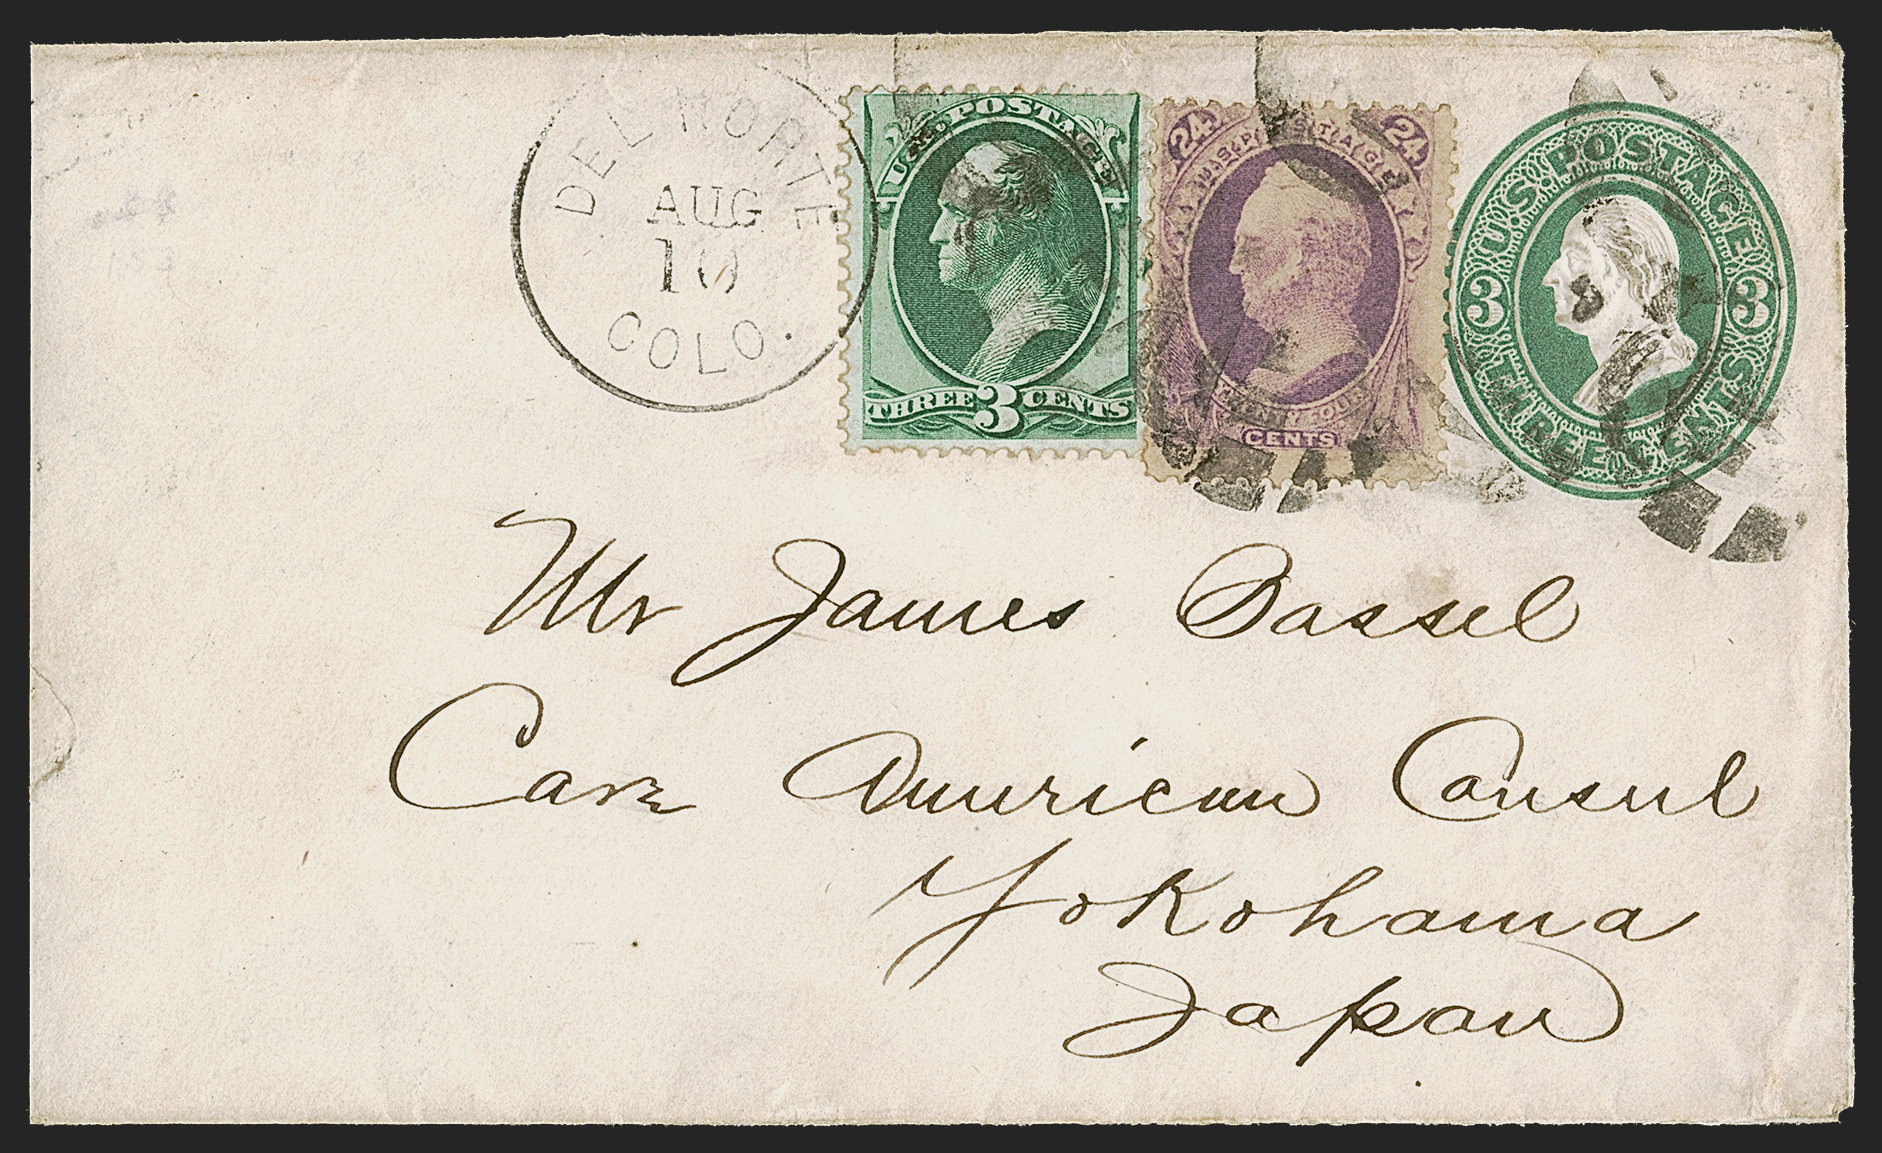 DEL NORTE
AUG
10
COLO.
U.S. POSTAGE
THREE 3 CENTS
24 24
U.S. POSTAGE
TWENTY FOUR
CENTS
U.S. POSTAGE
3 3
THREE CENTS
Mr James Bassel
Care American Consul
Yokohama
Japan